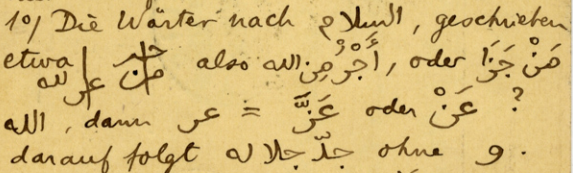 1°/ Die Wörter nach السلام, geschrieben
etwa من عر لله also أَجْرُ مِن الله, oder مَنْ جَزَا
الله, dann عر = عَزَّ oder عَنْ ?
darauf folgt جدّ جلاله ohne و.